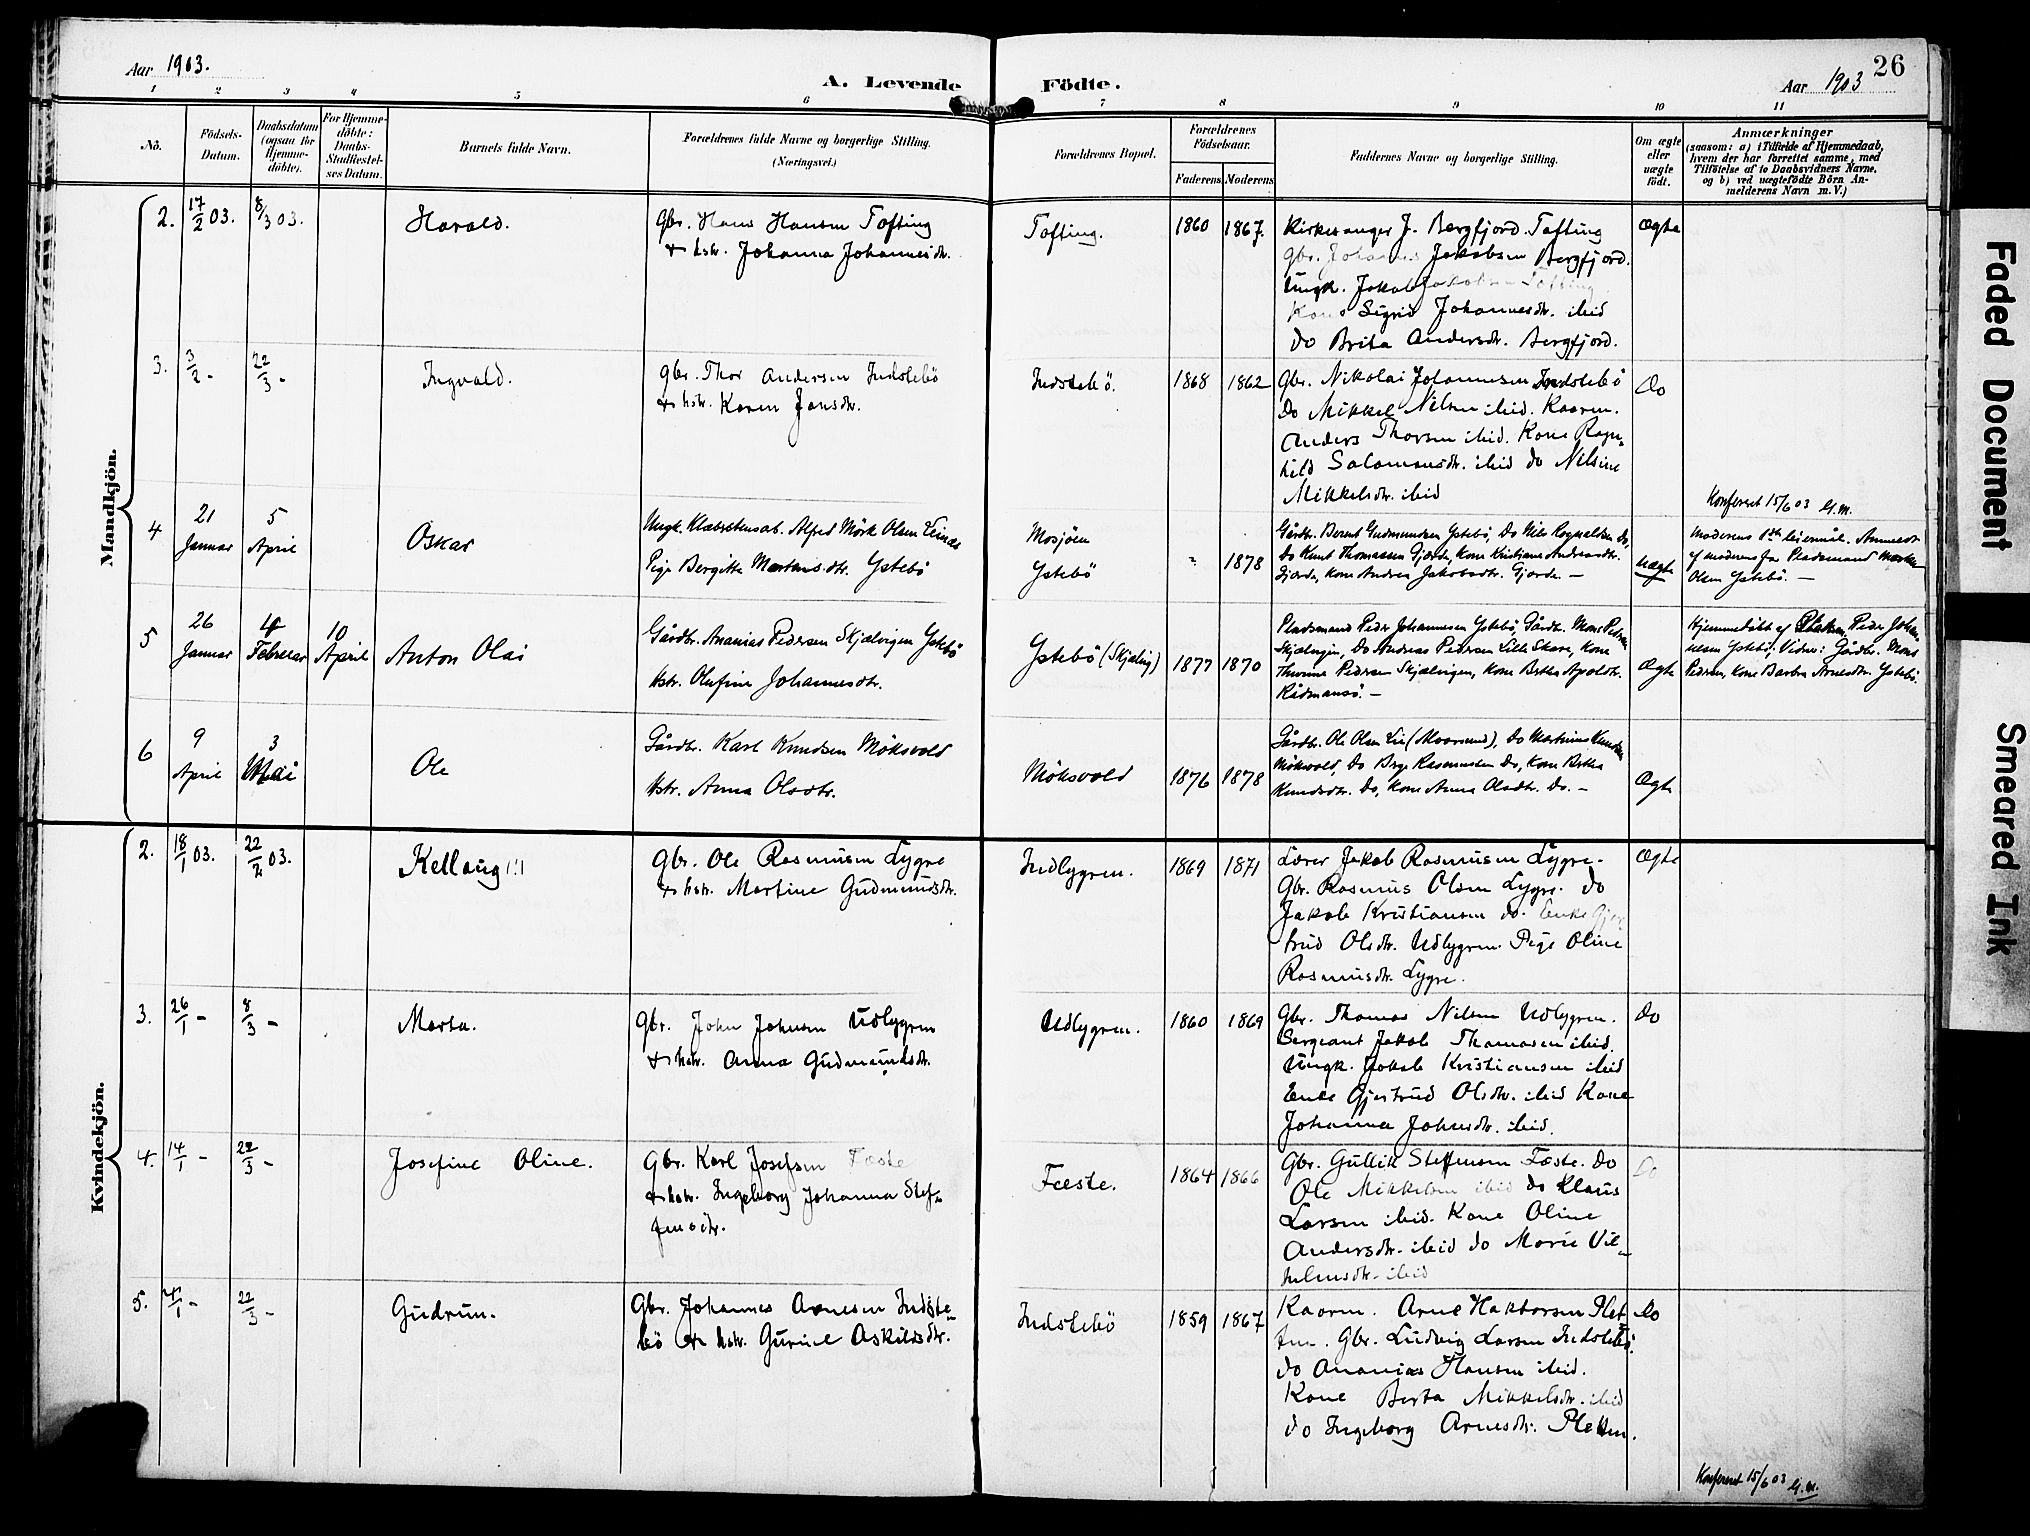 Aar 1903.
A. Levende Födte.
Aar 1903
26
1 2 3 4 5 6 7 8 9 10 11
Nô.
Födsels-
Datum.
Daabsdatum
(ogsaa for
Hjemme-
döbte).
For Hjemme-
döbte:
Daabs-
Stadfæstel-
ses Datum.
Barnets fulde Navn.
Forældrenes fulde Navne og borgerlige Stilling.
(Næringsvei.)
Forældrenes Bopæl.
Forældrenes
Födselsaar.
Faderens Moderens
Faddernes Navne og borgerlige Stilling.
Om ægte
eller
uægte
födt.
Anmærkninger
(saasom: a) i Tilfælde af Hjemmedaab,
hvem der har forrettet samme, med
Tilföielse af to Daabsvidners Navne,
og b) ved uægtefödte Börn An-
melderens Navn m. V.)
Mandkjön.
2. 17/2 03. 8/3 03.
Harald.
Gbr. Hans Hansen Tofting
& hstr. Johanna Johannesdtr.
Tofting.
1860 1867.
Kirkesanger J. Bergfjord. Tofting
Gbr. Johannes Jakobsen Bergfjord.
Ungk. Jakob Jakobsen Tofting
Kone Sigrid Johannesdtr. ibid
Do Brita Andersdtr. Bergfjord.
Ægte
3. 3/2 - 22/3 -
Ingvald.
Gbr. Thor Andersen Indstebö
& hstr. Karen Jansdtr.
Indstebö.
1868 1862
Gbr. Nikolai Johannesen Indstebö
Do Mikkel Nilsen ibid. Kaarm.
Anders Thorsen ibid. Kone Ragn-
hild Salomonsdtr. ibid do Nilsine
Mikkelsdtr. ibid
Do
Konfereret 15/6 03 G.M.
4 21 Januar 5 April
Oskar
Ungk. Alfred Mörk Olsen
Pige Bergitte Martinsdtr. Ystebö
Mosjöen
Ystebö
" 1878
Gårdbr. Bernt Gudmundsen Ystebö, Do Nils Rognaldsen do,
Do Knut Thomassen Gjerde, Kone Kristiane Andreasdtr.
Gjerde, Kone Andrea Jakobsdtr. Gjerde. —
Uægte
Moderens 1ste leiermål. Anmeldt
af moderens far Pladsmand Morten
Olsen Ystebö. —
5 26 Januar 4 Februar 10 April
Anton Olai
Gårdbr. Ananias Pedersen Skjælvigen Ystebö
Hstr. Olufine Johannesdtr.
Ystebö (Skjælvig)
1877 1870
Pladsmand Peder Johannesen Ystebö, Gårdbr. Mons Pedersen
Skjælvigen, Do Andreas Pedersen Lille Skare, Kone
Thorine Pedersen Skjælvigen, Kone Berthe Apoldtr.
Rådmansö. —
Ægte
Hjemmedöbt af Pladsm. Peder Johan-
nesen Ystebö, Vidner: Gårdbr. Mons
Pedersen, Kone Barbra Arnesdtr. Ystebö.
6 9 April 3 Mai
Ole
Gårdbr. Karl Knudsen Möksvold
Hstr. Anna Olsdtr.
Möksvold
1876 1878
Gårdbr. Ole Olsen Lie (Alvarsund), Do Martinus Knudsen
Möksvold, Do Berge Rasmussen Do, Kone Berthe
Knudsdtr. Do, Kone Anna Olsdtr. Do. —
Ægte
Kvindekjön.
2. 18/1 03. 22/2 03.
Kellaug (!)
Gbr. Ole Rasmusen Lygre
& hstr. Martine Gudmundsdtr.
Indlygren.
1869 1871
Lærer Jakob Rasmusen Lygre.
Gbr. Rasmus Olsen Lygre. Do
Jakob Kristiansen do. Enke Gjer-
trud Olsdtr. Udlygren. Pige Oline
Rasmusdtr. Lygre.
Ægte
3. 26/1 - 8/3 -
Marta.
Gbr. John Johnsen Udlygren
& hstr. Anna Gudmundsdtr.
Udlygren.
1860 1869
Gbr. Thomas Nilsen Udlygren.
Sergeant Jakob Thomasen ibid.
Ungk. Jakob Kristiansen ibid
Enke Gjertrud Olsdtr. ibid Kone
Johanna Johnsdtr. ibid.
Do
4. 14/1 - 22/3 -
Josefine Oline.
Gbr. Karl Josefsen Fæste
& hstr. Ingeborg Johanna Stef-
fensdtr.
Fæste.
1864 1866
Gbr. Gullik Steffensen Fæste. Do
Ole Mikkelsen ibid do Klaus
Larsen ibid. Kone Oline
Andersdtr. ibid do Marie Vil-
helmsdtr. ibid
Do
5. 4/1 - 22/3 -
Gudrun.
Gbr. Johannes Arnesen Indste-
bö & hstr. Gurine Askildsdtr.
Indstebö
1859 1867
Kaarm. Arne Haktorsen Plet-
ten. Gbr. Ludvig Larsen Indstebö.
do Ananias Hansen ibid.
Kone Berta Mikkelsdtr. ibid
do Ingeborg Arnesdtr. Pletten.
Do
Konfereret 15/6 03 G.M.
Faded Document
Smeared Ink